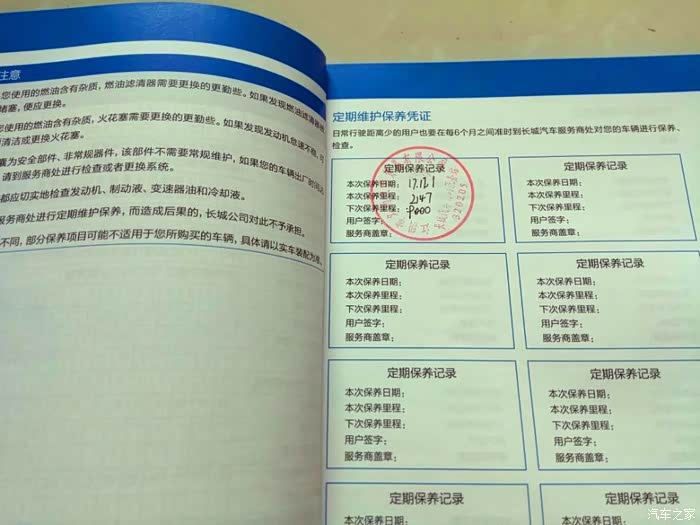 注意
您使用的燃油含有杂质,燃油滤清器需要更换的更勤些。如果发现燃油滤清器
堵塞,便应更换。
您使用的燃油含有杂质,火花塞需要更换的更勤些。如果发现发动机怠速不稳,可
清洁或更换火花塞。
囊为安全部件、非常规器件,该部件不需要常规维护,如果您的车辆出厂时间达
请到服务商处进行检查或者更换系统。
都应切实地检查发动机、制动液、变速器油和冷却液。
服务商处进行定期维护保养,而造成后果的,长城公司对此不予承担。
不同,部分保养项目可能不适用于您所购买的车辆,具体请以实车装配为准。
定期维护保养凭证
日常行驶距离少的用户也要在每6个月之间准时到长城汽车服务商处对您的车辆进行保养、
检查。
定期保养记录
本次保养日期: 17.12.1
本次保养里程: 2147
下次保养里程:
用户签字:
服务商盖章:
定期保养记录
本次保养日期:
本次保养里程:
下次保养里程:
用户签字:
服务商盖章:
定期保养记录
本次保养日期:
本次保养里程:
下次保养里程:
用户签字:
服务商盖章:
定期保养记录
本次保养日期:
本次保养里程:
下次保养里程:
用户签字:
服务商盖章:
定期保养记录
本次保养日期:
本次保养里程:
下次保养里程:
用户签字:
服务商盖章:
定期保养记录
本次保养日期:
本次保养里程:
下次保养里程:
用户签字:
服务商盖章:
定期保养记录
定期保养记录
汽车之家